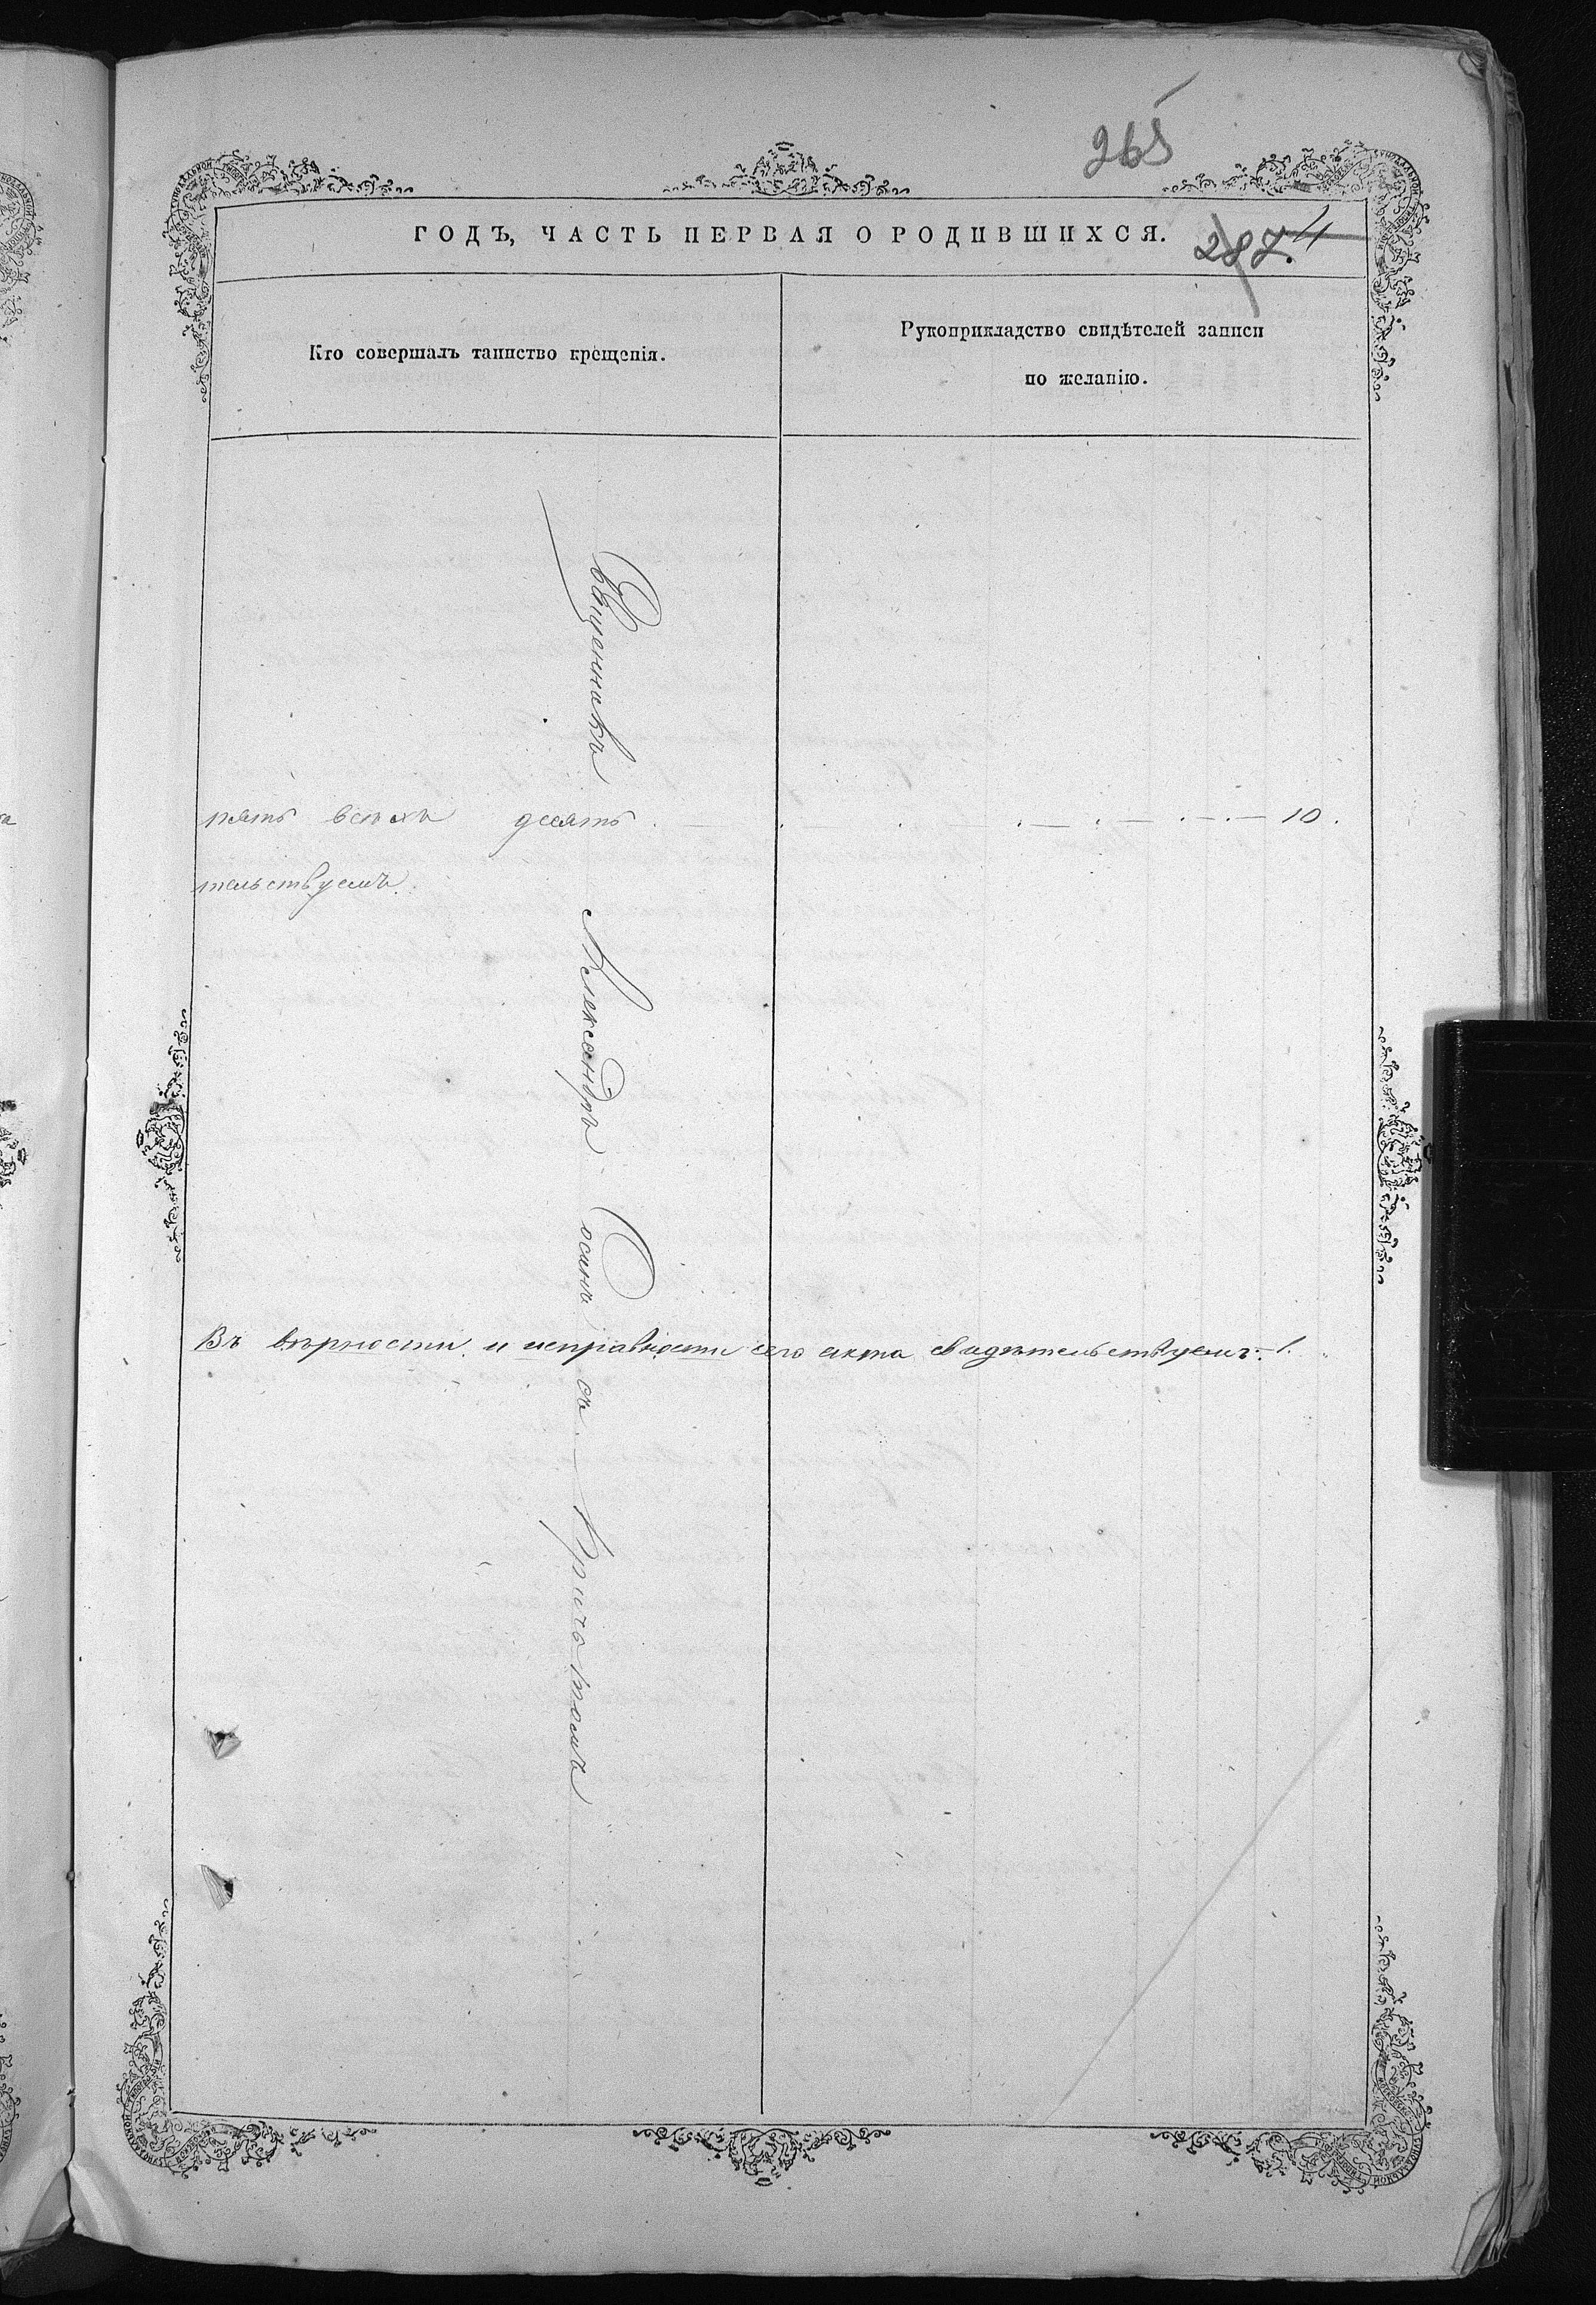 265
ГОДЪ, ЧАСТЬ ПЕРВАЯ О РОДИВШИХСЯ.
287.
Кто совершалъ таинство крещенія.
Рукоприкладство свидѣтелей записи
по желанію.
Священникъ Александръ Сосинъ съ Причтомъ
пять всѣхъ десять . — . — . — . — . — . — 10.
тельствуемъ.
Въ вѣрности и исправности сего акта свидѣтельствуемъ: